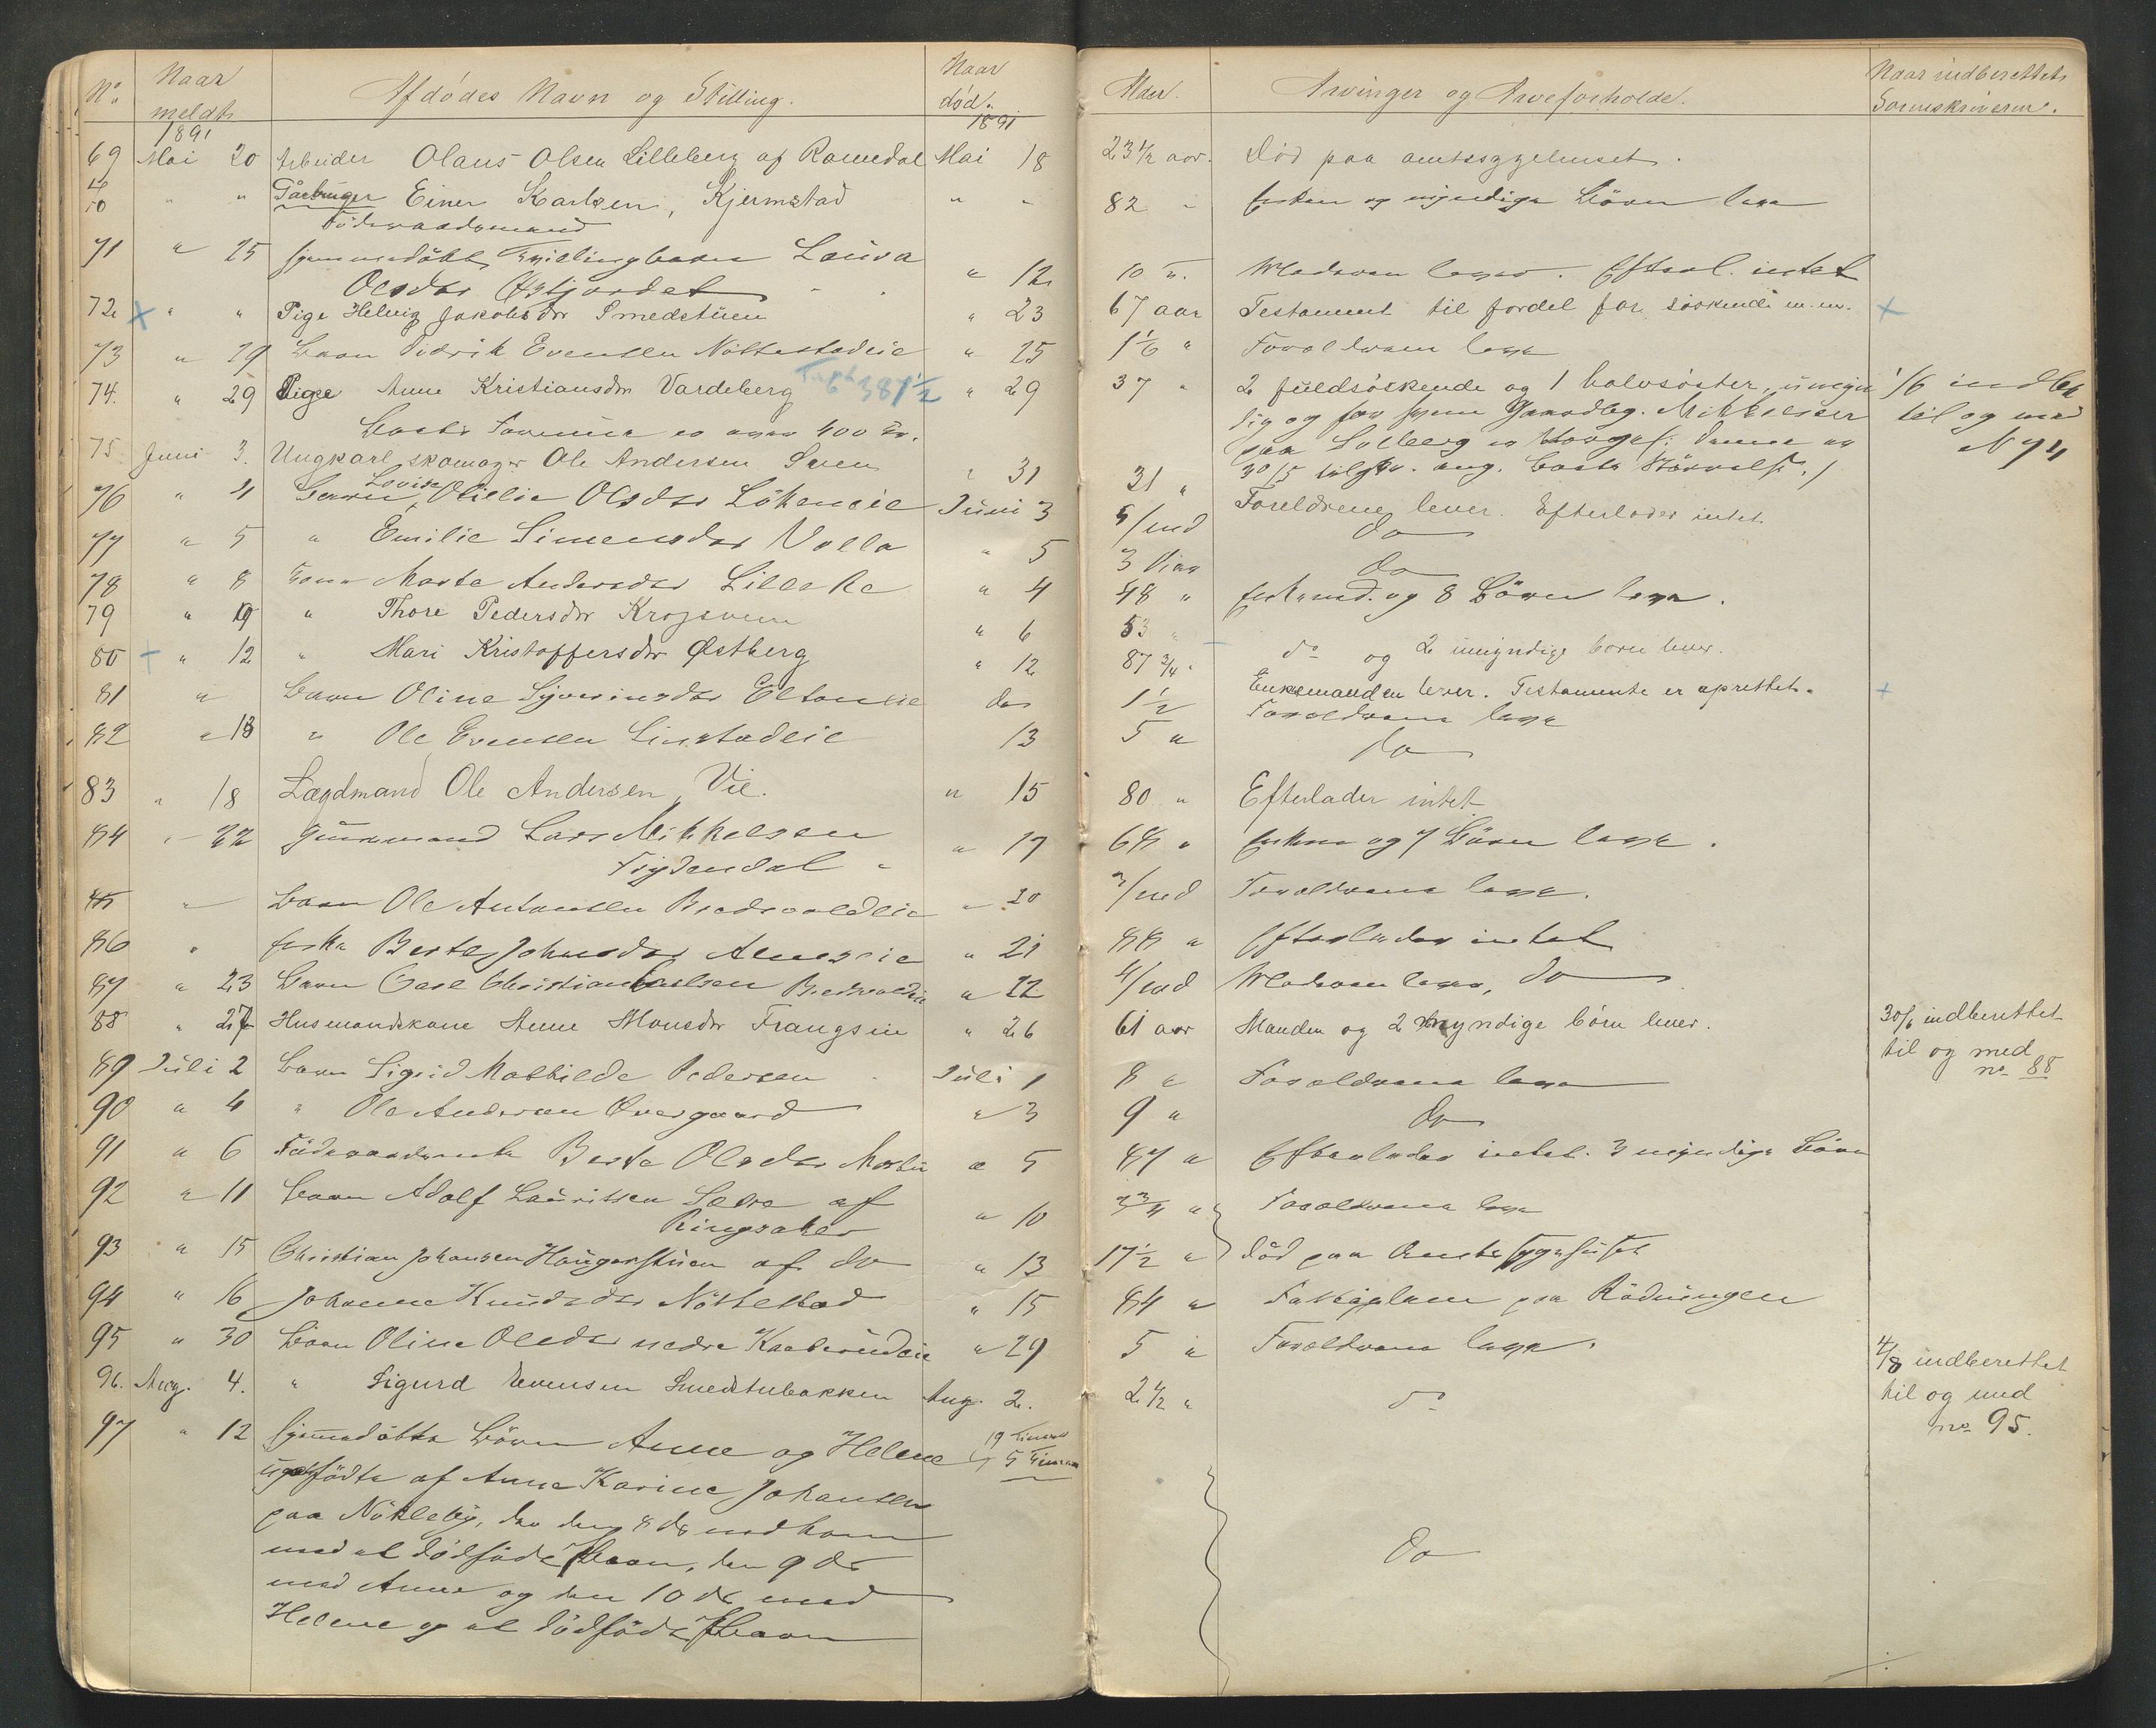 No. Naar meldt Afdødes Navn og Stilling. Naar død. Alder. Arvinger og Arveforholde. Naar indberettet Sorenskriveren.
1891 1891
69 Mai 20 Arbeider Olaus Olsen Lilleberg af Romedal Mai 18 23 1/2 aar. Død paa amtssygehuset.
70 " " Einer Karlsen, Kjermstad " " 82 " Enken og myndige Börn leve
Föderaadsmand
71 " 25 hjemmedöbt Tvillingbarn Laura
Olsdtr Østjordet " 12 10 u. Moderen lever. Efterl. intet
72 " " Pige Helvig Jakobsdtr Smedstuen " 23 67 aar Testament til fordel for søskende m.m.
73 " 29 Barn Didrik Evensen Nöttestadeie " 25 1 1/6 " Forældrene leve
74. " 29 Pige Anne Kristiansdtr Vardeberg " 29 37 " 2 fuldsöskende og 1 halvsöster, umyn 1/6 indber
dig og for hvem Gaardbg. Mikkelsen til og med
Boets Formue er over 400 Kr. paa Solberg er Værge N 74
75 Juni 3. Ungkarl skomager Ole Andersen Sveen " 31 31 " 30/5 ang. Boets Størrelse.
76 " 4 Barn Lovise Otilie Olsdtr Løkeneie Juni 3 5/md Foreldrene lever. Efterlader intet.
77 " 5 " Emilie Simensdtr Volla " 5 3 Dia Do
78 " 8 Kone Marte Andersdtr Lilleke " 4 48 " Enkemd. og 8 Börn leve.
79 " 9 " Thore Pedersdtr Krogsveen " 6 53 " do og 2 umyndige børn lever.
80 " 12 " Mari Kristoffersdtr Østberg " 12 87 3/4 " Enkemanden lever. Testamente er oprettet.
81 " Barn Oline Syverinsdtr Eltoneie do 1 1/2 Forældrene leve
82 " 13 " Ole Evensen Linstadeie 13 5 " Do
83 " 18 Lægdmand Ole Andersen, Vie. " 15 80 " Efterlader intet
84 " 22 Gaardmand Lars Mikkelsen
Frydendal " 17 68 " Enken og 7 Börn leve.
85 " Barn Ole Antonsen Bredvoldeie " 20 2/md Forældrene leve.
86 " Enke Berte Johnsdtr Almeseie " 21 88 " Efterlader intet
87 " 23 Barn Carl Christian Carlsen Bredvoldeie " 22 4/md Moderen lever, do
88 " 27 Husmandskone Anne Monsdtr Frangstu " 26 61 aar Manden og 2 myndige börn lever. 30/6 indberettet
til og med
no. 88
89 Juli 2 Barn Sigrid Mathilde Pedersen Juli 1 8 " Forældrene leve
90 " 4 " Ole Andersen Övergaard " 3 9 " Do
91 " 6 Föderaadsenke Berte Olsdtr Morstu " 5 87 " Efterlader intet. 3 myndige Börn
92 " 11 Barn Adolf Lauritsen Sælve af
Ringsaker " 10 2 3/4 " Forældrene leve
93 " 15 Christian Johansen Haugerstuen af do " 13 17 1/2 " Död paa Amtssygehuset
94 " 16 Johanne Knudsdtr Nöttestad " 15 84 " Fattiglem paa Rödningen
95 " 30 Barn Oline Olsdtr nedre Kaaterudeie " 29 5 " Forældrene leve.
96. Aug. 4. " Sigurd Evensen Smedstubakken Aug. 2. 2 1/2 " do
4/8 indberettet
til og med
no. 95.
97 " 12 hjemmedöbte Börn Anne og Helene 19 Timer
5 Timer
födte af Anne Karine Johansen
paa Nökleby, der den 8 ds nedkom
med et dödfödt Barn, den 9 ds
med Anne og den 10 ds med Do
Helene og et dödfödt Barn